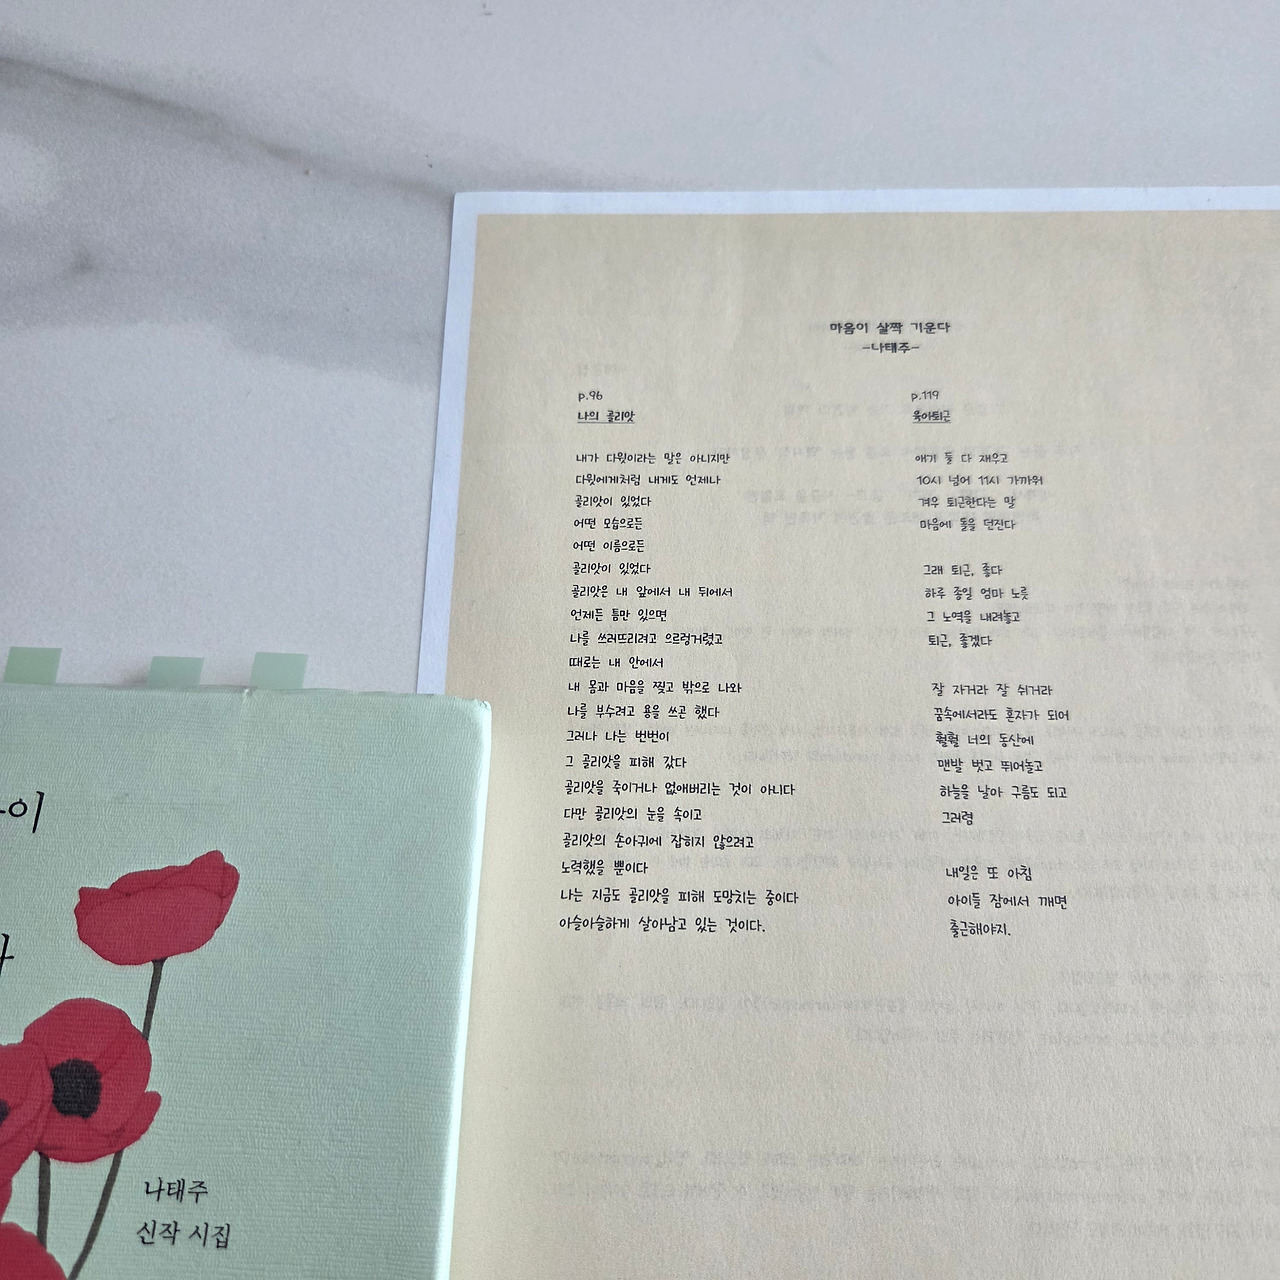 마음이 살짝 기운다
-나태주-
p.96
나의 골리앗
내가 다윗이라는 말은 아니지만
다윗에게처럼 내게도 언제나
골리앗이 있었다
어떤 모습으로든
어떤 이름으로든
골리앗이 있었다
골리앗은 내 앞에서 내 뒤에서
언제든 틈만 있으면
나를 쓰러뜨리려고 으르렁거렸고
때로는 내 안에서
내 몸과 마음을 찢고 밖으로 나와
나를 부수려고 용을 쓰곤 했다
그러나 나는 번번이
그 골리앗을 피해 갔다
골리앗을 죽이거나 없애버리는 것이 아니다
다만 골리앗의 눈을 속이고
골리앗의 손아귀에 잡히지 않으려고
노력했을 뿐이다
나는 지금도 골리앗을 피해 도망치는 중이다
아슬아슬하게 살아남고 있는 것이다.
p.119
육아퇴근
애기 둘 다 재우고
10시 넘어 11시 가까워
겨우 퇴근한다는 말
마음에 돌을 던진다
그래 퇴근, 좋다
하루 종일 엄마 노릇
그 노역을 내려놓고
퇴근, 좋겠다
잘 자거라 잘 쉬거라
꿈속에서라도 혼자가 되어
훨훨 너의 동산에
맨발 벗고 뛰어놀고
하늘을 날아 구름도 되고
그러렴
내일은 또 아침
아이들 잠에서 깨면
출근해야지.
이
나태주
신작 시집